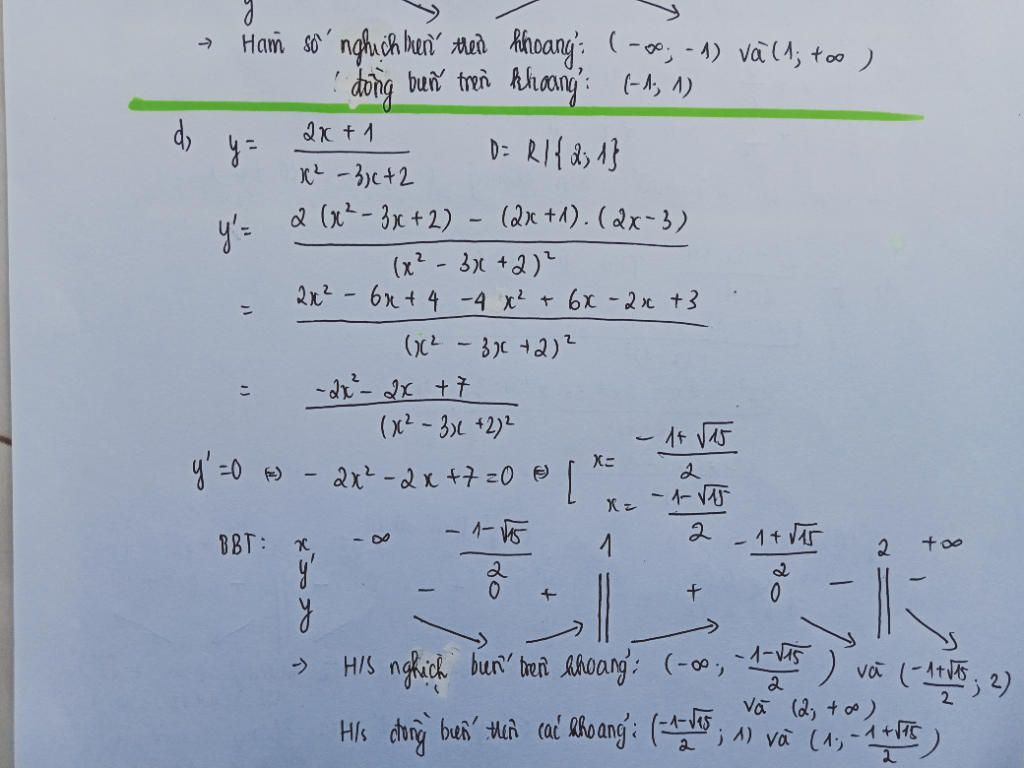 y
→ Hàm số nghịch biến trên khoảng: (-∞; -1) và (1; +∞)
đồng biến trên khoảng: (-1; 1)
d) y = (2x + 1)/(x² - 3x + 2) D = R\{2; 1}
y' = (2(x² - 3x + 2) - (2x + 1).(2x - 3))/(x² - 3x + 2)²
= (2x² - 6x + 4 - 4x² + 6x - 2x + 3)/(x² - 3x + 2)²
= (-2x² - 2x + 7)/(x² - 3x + 2)²
y' = 0 ⇔ - 2x² - 2x + 7 = 0 ⇔ [ x = (-1 + √15)/2
x = (-1 - √15)/2
BBT: x -∞ (-1 - √15)/2 1 (-1 + √15)/2 2 +∞
y' - 0 + || + 0 - || -
y ↘ ↗ || ↗ ↘ || ↘
→ H/S nghịch biến trên khoảng: (-∞; (-1 - √15)/2) và ((-1 + √15)/2; 2)
và (2; +∞)
H/s đồng biến trên các khoảng: ((-1 - √15)/2; 1) và (1; (-1 + √15)/2)